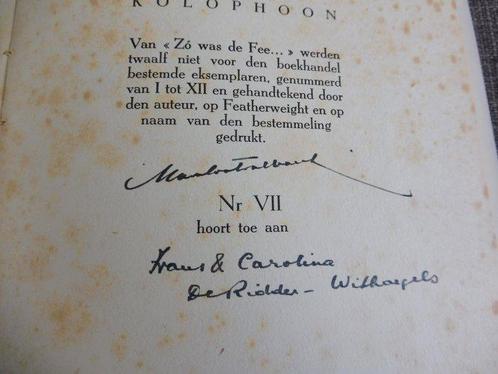 KOLOPHOON
Van « Zó was de Fee... » werden
twaalf niet voor den boekhandel
bestemde eksemplaren, genummerd
van I tot XII en gehandtekend door
den auteur, op Featherweight en op
naam van den bestemmeling
gedrukt.
Nr VII
hoort toe aan
Frans & Carolina
De Ridder - Withaegels